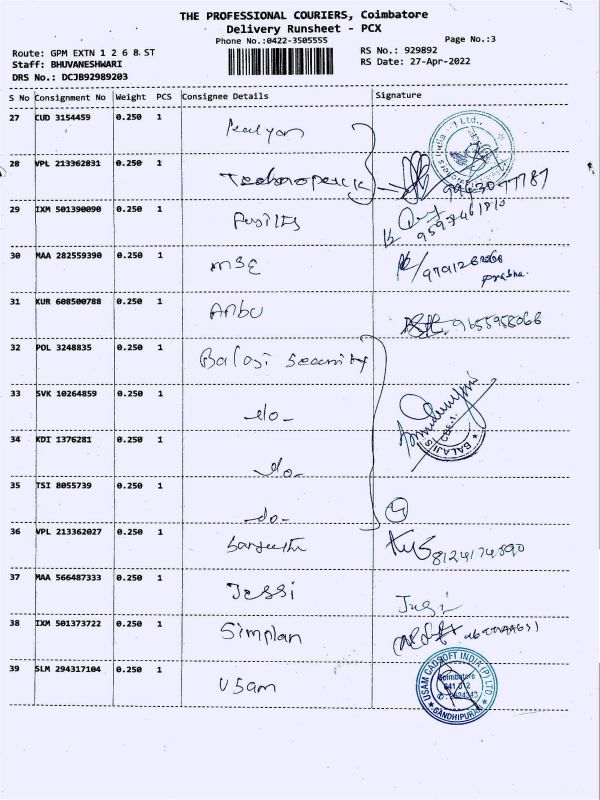 THE PROFESSIONAL COURIERS, Coimbatore
Delivery Runsheet - PCX
Phone No.:0422-3505555
Page No.:3
Route: GPM EXTN 1 2 6 8 ST
RS No.: 929892
Staff: BHUVANESHWARI
RS Date: 27-Apr-2022
DRS No.: DCJB92989203
S No Consignment No Weight PCS Consignee Details Signature
27 CUD 3154459 0.250 1 Kalyan
28 VPL 213362831 0.250 1
29 IXM 501390090 0.250 1
30 MAA 282559390 0.250 1 MSE
prabha.
31 KUR 608500788 0.250 1 Anbu 9655958066
32 POL 3248835 0.250 1 Balaji Security
33 SVK 10264859 0.250 1 -do-
BALAJI'S CBE-1.
34 KDI 1376281 0.250 1 -do-
35 TSI 8055739 0.250 1 -do- 4
36 VPL 213362027 0.250 1 Sanjeeth
37 MAA 566487333 0.250 1 Jessi
38 IXM 501373722 0.250 1 Simplan
39 SLM 294317104 0.250 1 Usam
USAM CADSOFT INDIA (P) LTD.
Coimbatore
641 012
GANDHIPURAM